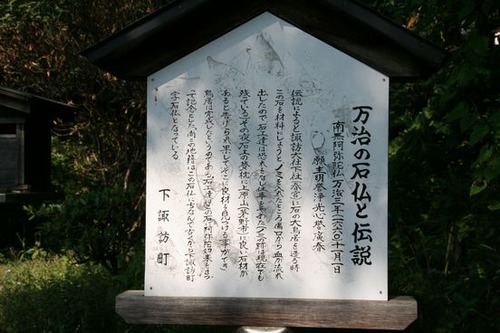 万治の石仏と伝説
南無阿弥陀仏 万治三年(一六六〇)十一月一日
願主 明誉浄光 心誉廣春
伝説によると諏訪大社下社春宮に石の大鳥居を造る時
この石を材料にしようとノミを入れたところ傷口から血が流れ
出したので石工達は恐れをなし仕事をやめた(ノミの跡は現在でも
残っている)その夜石工の夢枕に上原山(茅野市)に良い石材が
あると告げられ果してそこに良材を見つけることができ
鳥居は完成したというのである石工達はこの石に阿弥陀様をまつっ
て記念とした尚この地籍はこの石仏にちなんで古くから下諏訪町
字石仏となっている
下諏訪町